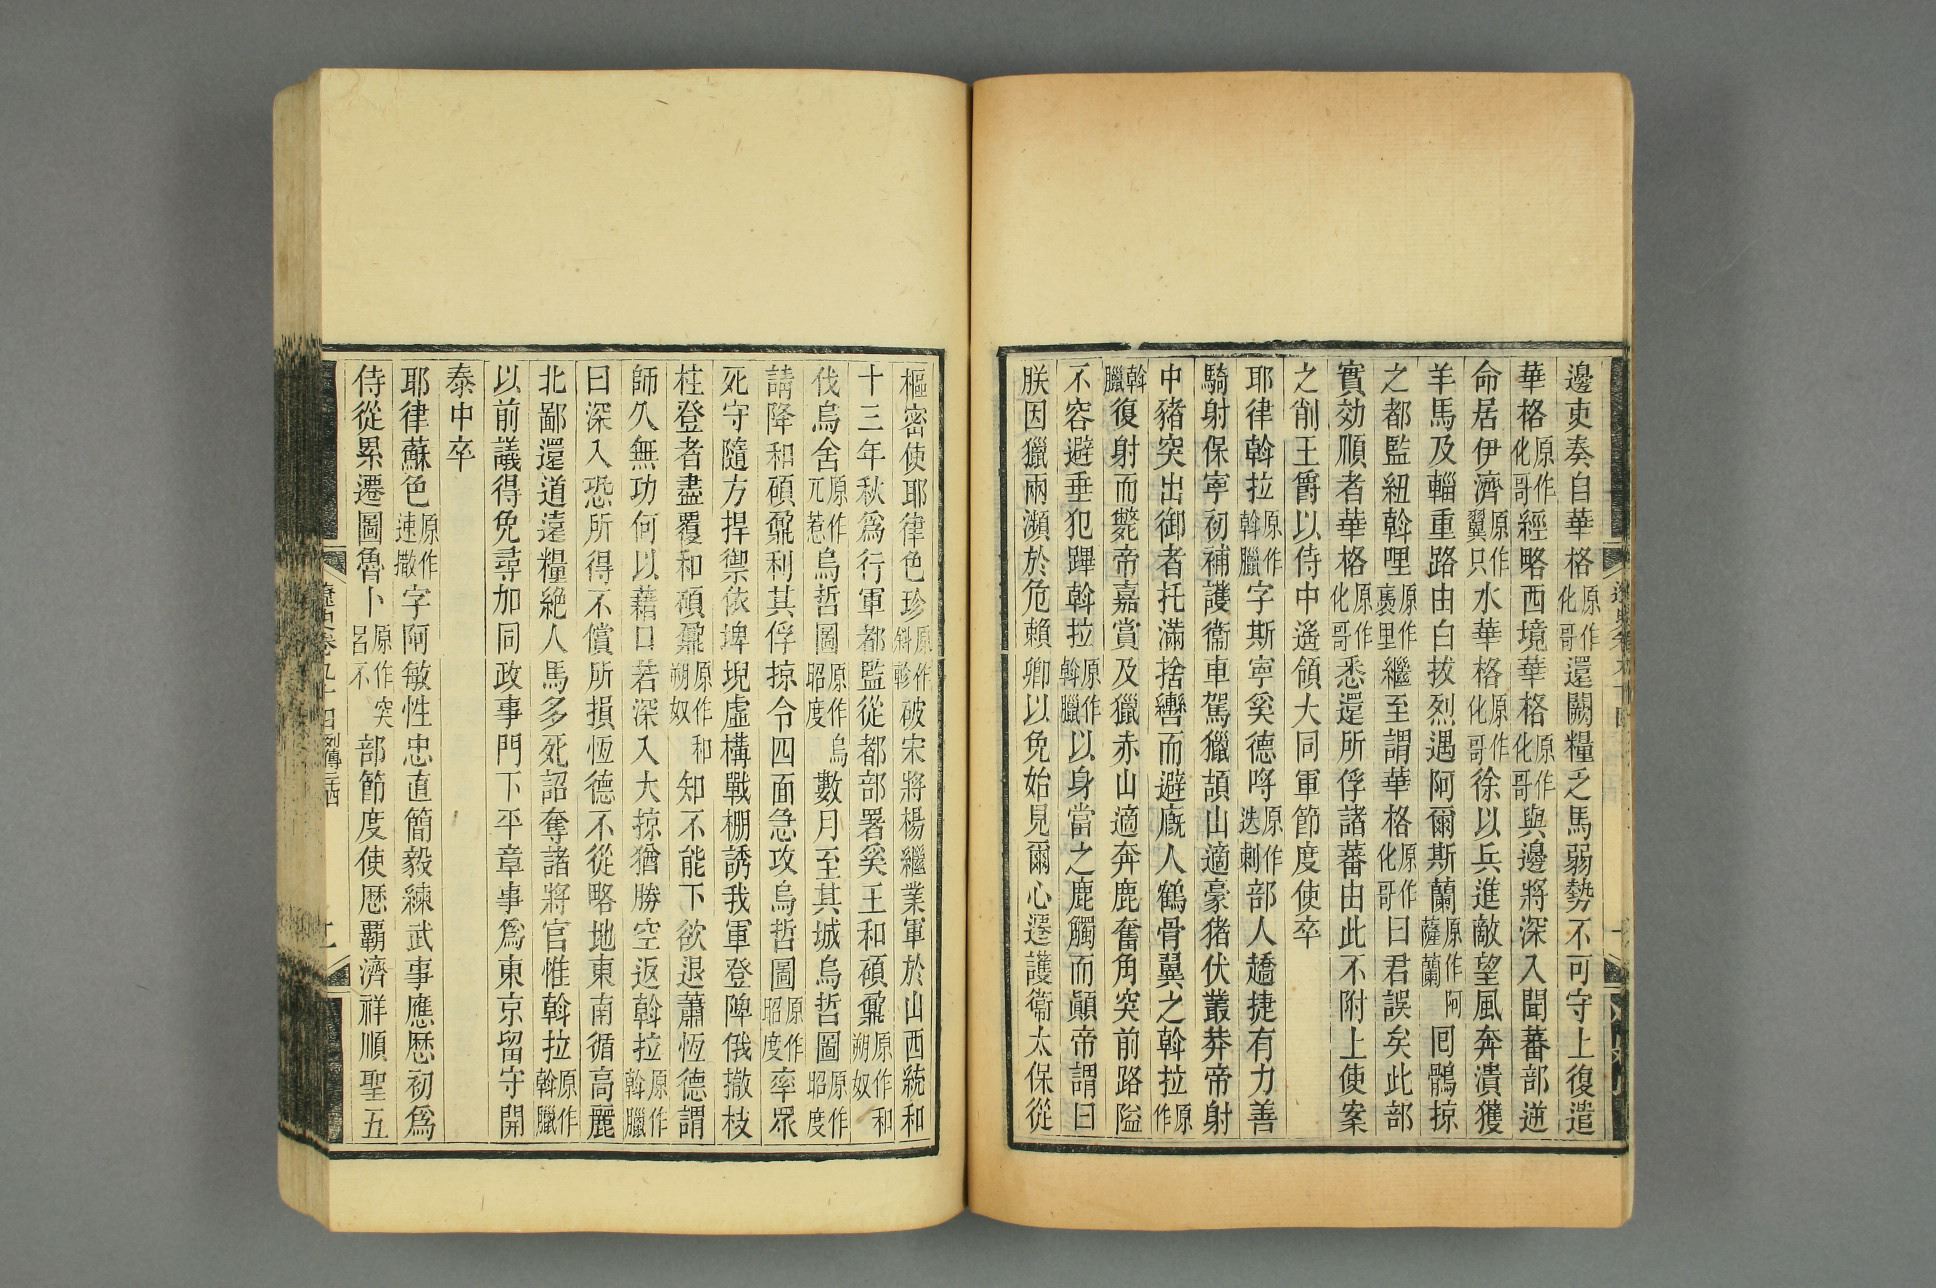 邊吏奏自華格原作化哥還闕糧乏馬弱勢不可守上復遣
華格原作化哥經略西境華格原作化哥與邊將深入聞蕃部逆
命居伊濟原作翼只水華格原作化哥徐以兵進敵望風奔潰獲
羊馬及輜重路由白拔烈遇阿爾斯蘭原作阿薩蘭回鶻掠
之都監紐斡哩原作裹里繼至謂華格原作化哥曰君誤矣此部
實効順者華格原作化哥悉還所俘諸蕃由此不附上使案
之削王爵以侍中遙領大同軍節度使卒
耶律斡拉原作斡臘字斯寧奚德哷原作迭剌部人趫捷有力善
騎射保寧初補護衞車駕獵頡山適豪猪伏叢莽帝射
中猪突出御者托滿捨轡而避廐人鶴骨翼之斡拉原作
斡臘復射而斃帝嘉賞及獵赤山適奔鹿奮角突前路隘
不容避垂犯蹕斡拉原作斡臘以身當之鹿觸而顚帝謂曰
朕因獵兩瀕於危賴卿以免始見爾心遷護衞太保從
樞密使耶律色珍原作斜軫破宋將楊繼業軍於山西統和
十三年秋爲行軍都監從都部署奚王和碩鼐原作和朔奴
伐烏舍原作兀惹烏哲圖原作烏昭度數月至其城烏哲圖原作昭度
請降和碩鼐利其俘掠令四面急攻烏哲圖原作昭度率眾
死守隨方捍禦依埤堄虛構戰棚誘我軍登陴俄撤枝
柱登者盡覆和碩鼐原作和朔奴知不能下欲退蕭恆德謂
師久無功何以藉口若深入大掠猶勝空返斡拉原作斡臘
曰深入恐所得不償所損恆德不從略地東南循高麗
北鄙還道遠糧絶人馬多死詔奪諸將官惟斡拉原作斡臘
以前議得免尋加同政事門下平章事爲東京留守開
泰中卒
耶律蘇色原作速撒字阿敏性忠直簡毅練武事應厯初爲
侍從累遷圖魯卜原作突呂不部節度使厯霸濟祥順聖五
遼史卷九十四 列傳二十四